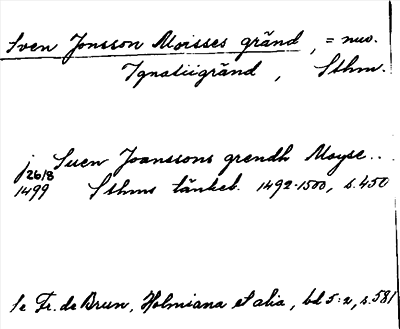 Sven Jonsson Moisses gränd, = nuv.
Ignatiigränd, Sthm.
j Suen Joanssons grendh Moyse...
26/8
1499 Sthms tänkeb. 1492-1500, s. 450
Se Fr. de Brun, Holmiana et alia, bd 5:2, s. 581